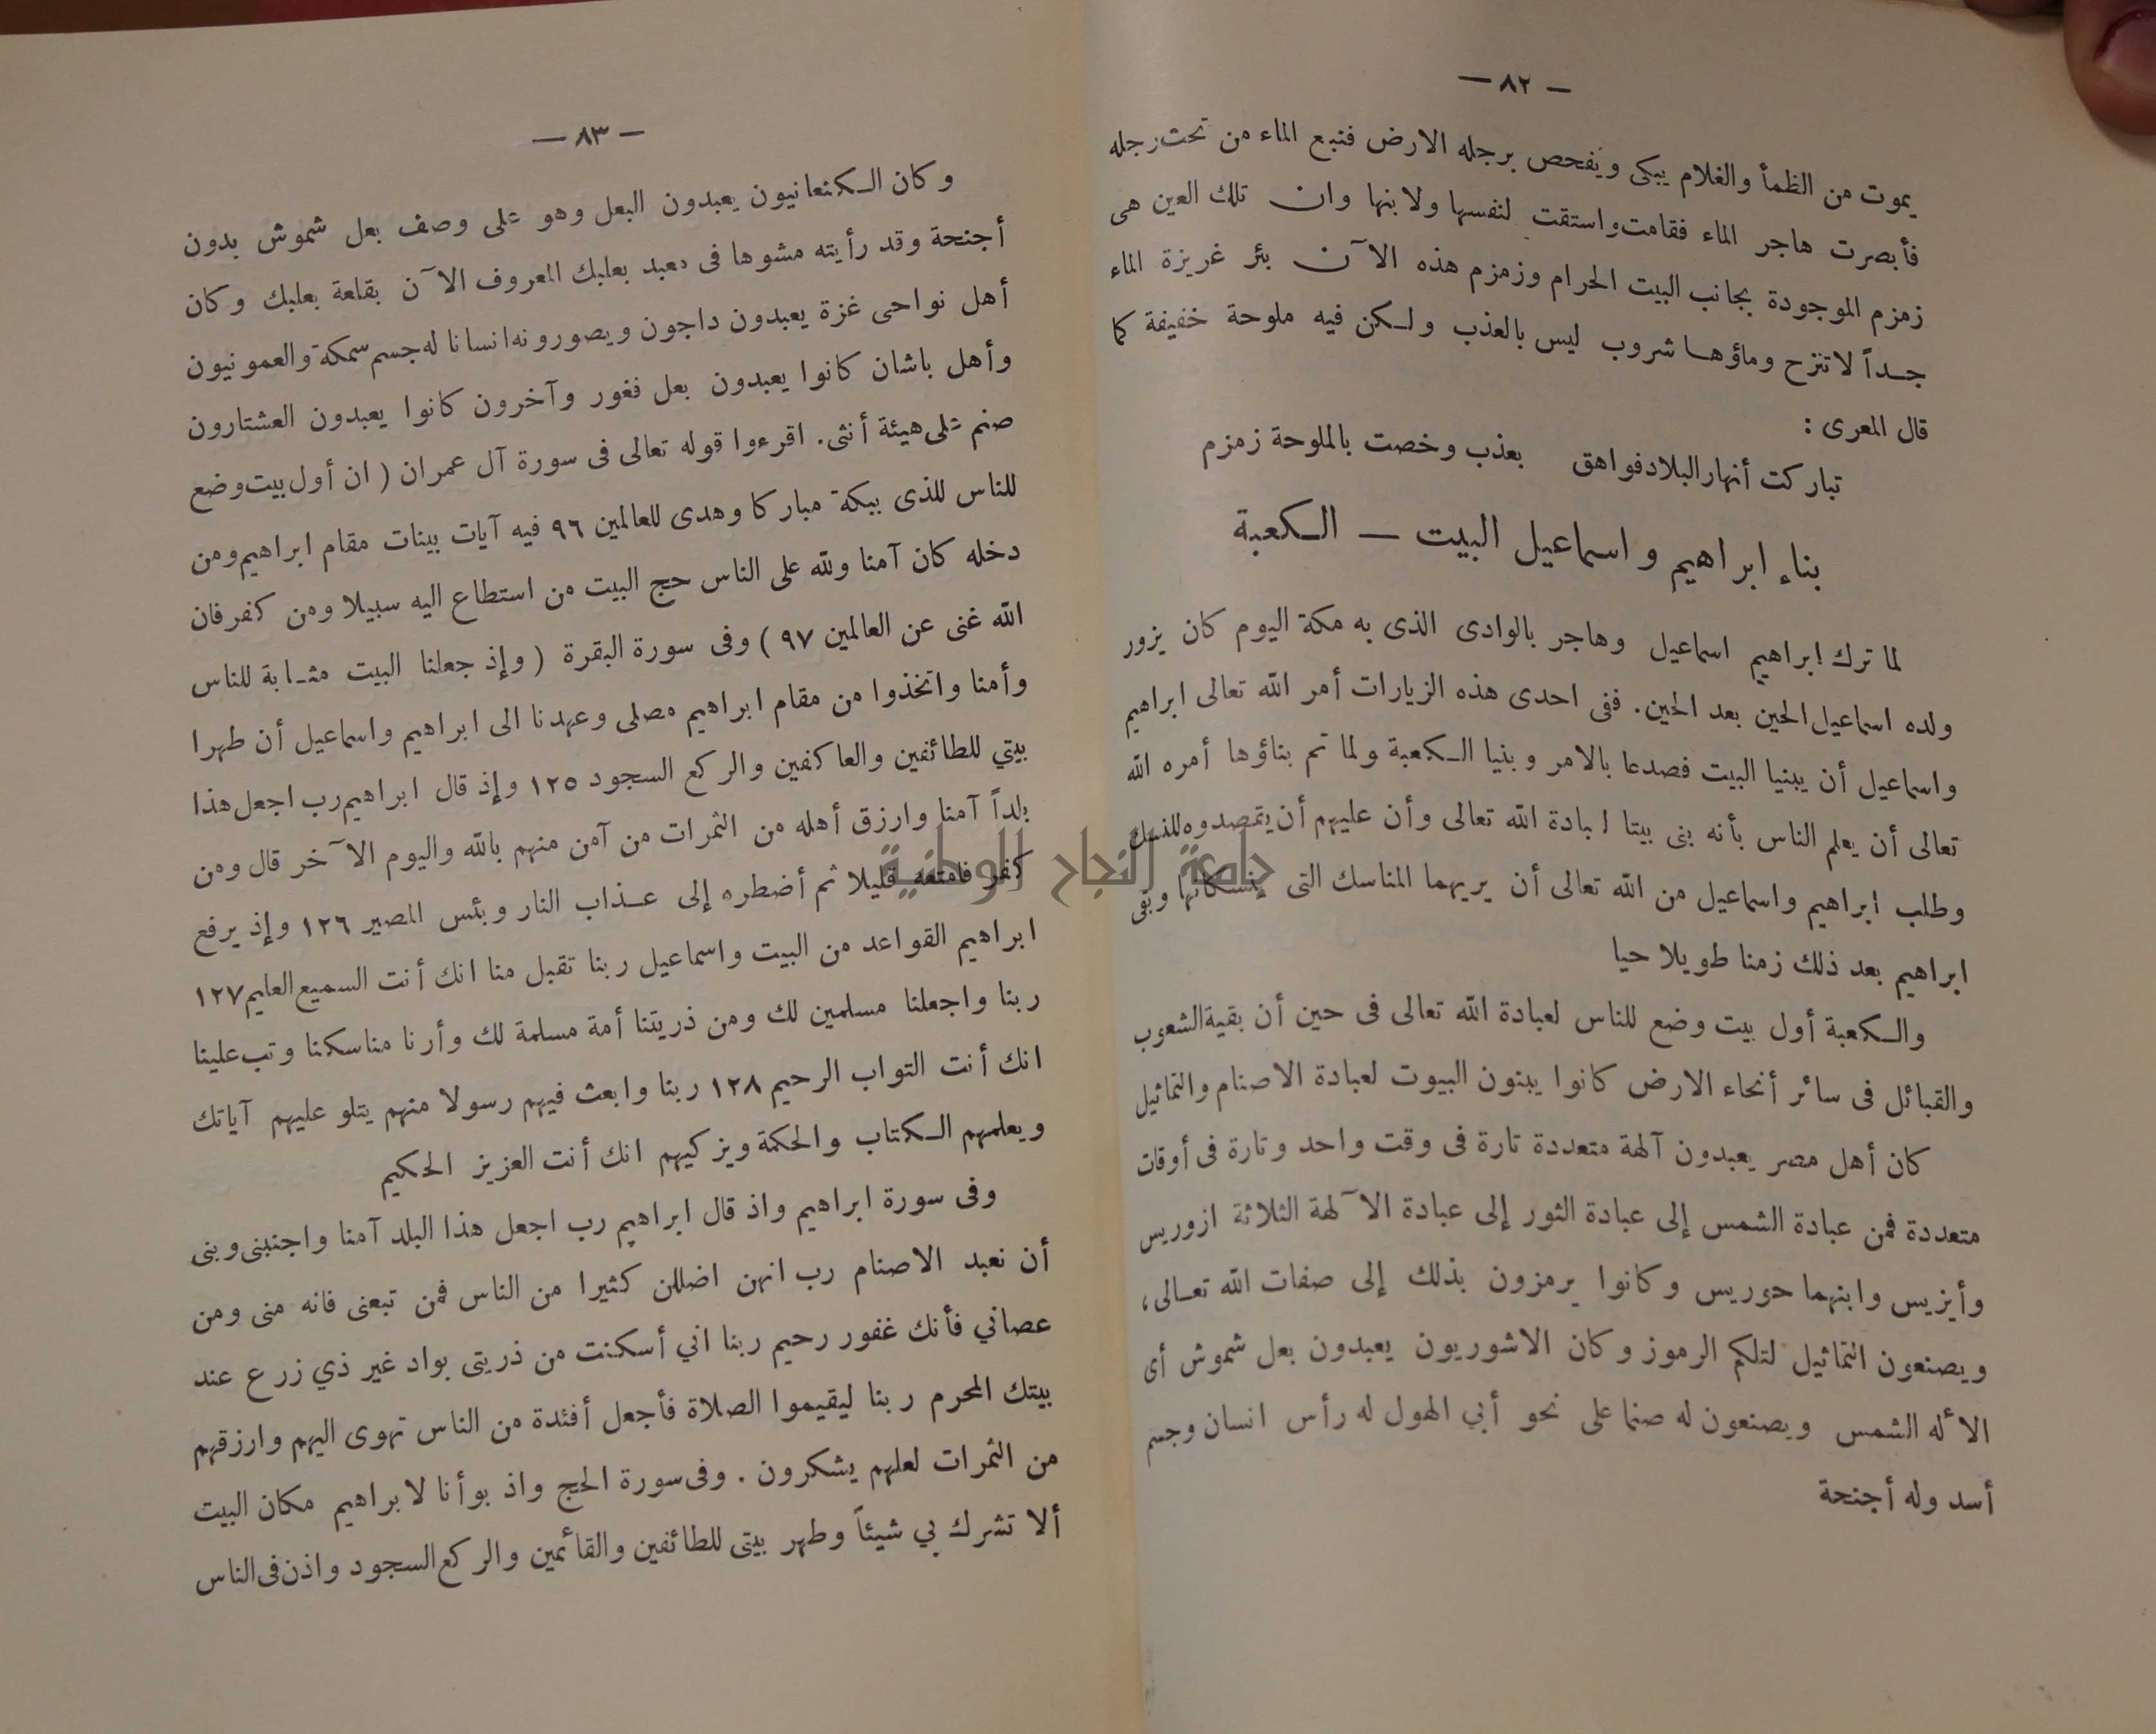 — ٨٢ —
يموت من الظمأ والغلام يبكى ويفحص برجله الارض فنبع الماء من تحت رجله
فأبصرت هاجر الماء فقامت واستقت لنفسها ولابنها وان تلك العين هى
زمزم الموجودة بجانب البيت الحرام وزمزم هذه الآن بئر غريزة الماء
جداً لا تنزح وماؤها شروب ليس بالعذب ولكن فيه ملوحة خفيفة كما
قال المعرى :
تباركت أنهار البلاد فواهق بعذب وخصت بالملوحة زمزم
بناء ابراهيم واسماعيل البيت — الكعبة
لما ترك ابراهيم اسماعيل وهاجر بالوادى الذى به مكة اليوم كان يزور
ولده اسماعيل الحين بعد الحين. ففى احدى هذه الزيارات أمر الله تعالى ابراهيم
واسماعيل أن يبنيا البيت فصدعا بالامر وبنيا الكعبة ولما تم بناؤها أمره الله
تعالى أن يعلم الناس بأنه بنى بيتا لبادة الله تعالى وأن عليهم أن يقصدوه للنسك
وطلب ابراهيم واسماعيل من الله تعالى أن يريهما المناسك التى ينسكانها وبقى
ابراهيم بعد ذلك زمنا طويلا حيا
والكعبة أول بيت وضع للناس لعبادة الله تعالى فى حين أن بقية الشعوب
والقبائل فى سائر أنحاء الارض كانوا يبنون البيوت لعبادة الاصنام والتماثيل
كان أهل مصر يعبدون آلهة متعددة تارة فى وقت واحد وتارة فى أوقات
متعددة فمن عبادة الشمس إلى عبادة الثور إلى عبادة الآلهة الثلاثة ازوريس
وأيزيس وابنهما حوريس وكانوا يرمزون بذلك إلى صفات الله تعالى،
ويصنعون التماثيل لتلكم الرموز وكان الاشوريون يعبدون بعل شموش أى
الأله الشمس ويصنعون له صنما على نحو أبي الهول له رأس انسان وجسم
أسد وله أجنحة
— ٨٣ —
وكان الكنعانيون يعبدون البعل وهو على وصف بعل شموش بدون
أجنحة وقد رأيته مشوها فى معبد بعلبك المعروف الآن بقلعة بعلبك وكان
أهل نواحى غزة يعبدون داجون ويصورونه انسانا له جسم سمكة والعمونيون
وأهل باشان كانوا يعبدون بعل فغور وآخرون كانوا يعبدون العشتارون
صنم على هيئة أنثى. اقرءوا قوله تعالى فى سورة آل عمران ( ان أول بيت وضع
للناس للذى ببكة مباركا وهدى للعالمين ٩٦ فيه آيات بينات مقام ابراهيم ومن
دخله كان آمنا ولله على الناس حج البيت من استطاع اليه سبيلا ومن كفر فان
الله غنى عن العالمين ٩٧ ) وفى سورة البقرة ( وإذ جعلنا البيت مثابة للناس
وأمنا واتخذوا من مقام ابراهيم مصلى وعهدنا الى ابراهيم واسماعيل أن طهرا
بيتي للطائفين والعاكفين والركع السجود ١٢٥ وإذ قال ابراهيم رب اجعل هذا
بلداً آمنا وارزق أهله من الثمرات من آمن منهم بالله واليوم الآخر قال ومن
كفر فامتعه قليلا ثم أضطره إلى عذاب النار وبئس المصير ١٢٦ وإذ يرفع
ابراهيم القواعد من البيت واسماعيل ربنا تقبل منا انك أنت السميع العليم ١٢٧
ربنا واجعلنا مسلمين لك ومن ذريتنا أمة مسلمة لك وأرنا مناسكنا وتب علينا
انك أنت التواب الرحيم ١٢٨ ربنا وابعث فيهم رسولا منهم يتلو عليهم آياتك
ويعلمهم الكتاب والحكمة ويزكيهم انك أنت العزيز الحكيم
وفى سورة ابراهيم واذ قال ابراهيم رب اجعل هذا البلد آمنا واجنبنى وبنى
أن نعبد الاصنام رب انهن اضللن كثيرا من الناس فمن تبعنى فانه منى ومن
عصاني فأنك غفور رحيم ربنا اني أسكنت من ذريتى بواد غير ذي زرع عند
بيتك المحرم ربنا ليقيموا الصلاة فأجعل أفئدة من الناس تهوى اليهم وارزقهم
من الثمرات لعلهم يشكرون . وفى سورة الحج واذ بوأنا لابراهيم مكان البيت
ألا تشرك بي شيئاً وطهر بيتى للطائفين والقائمين والركع السجود واذن فى الناس
جامعة النجاح الوطنية